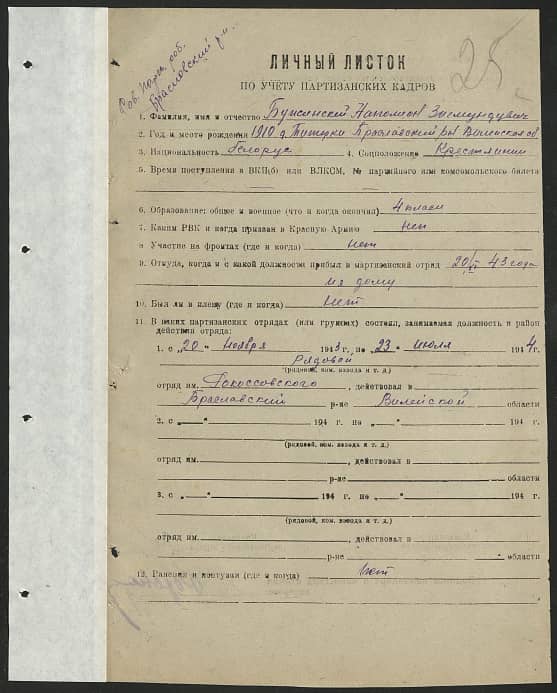 25
Браславский р-н
ЛИЧНЫЙ ЛИСТОК
ПО УЧЕТУ ПАРТИЗАНСКИХ КАДРОВ
1. Фамилия, имя и отчество
2. Год и место рождения 1910 д. Браславский р-н Вилейская об
3. Национальность белорус 4. Соцположение Крестьянин
5. Время поступления в ВКП(б) или ВЛКСМ, № партийного или комсомольского билета
6. Образование: общее и военное (что и когда окончил) 4 класс
7. Каким РВК и когда призван в Красную Армию нет
8. Участие на фронтах (где и когда) нет
9. Откуда, когда и с какой должности прибыл в партизанский отряд 20/XI 43 года
из дому
10. Был ли в плену (где и когда) нет
11. В каких партизанских отрядах (или группах) состоял, занимаемая должность и район
действия отряда:
1. с „20" ноября 1943 г. по „23" июля 1944 г.
Рядовой
(рядовой, ком. взвода и т. д.)
отряд им. Рокоссовского, действовал в
Браславский р-не Вилейской области
2. с „ " 194 г. по „ " 194 г.
(рядовой, ком. взвода и т. д.)
отряд им. , действовал в
р-не области
3. с „ " 194 г. по „ " 194 г.
(рядовой, ком. взвода и т. д.)
отряд им. , действовал в
р-не области
12. Ранения и контузии (где и когда) нет